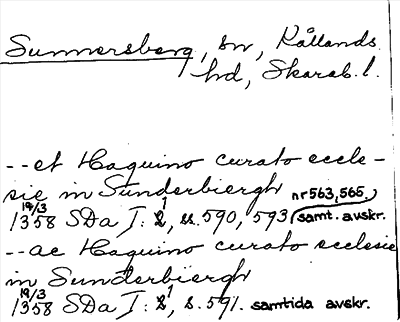 Sunnersberg, sn, Kållands
hd, Skarab. l.
--et Haquino curato eccle-
sie in Sunderbiergh nr 563, 565.
19/3 1358 SDa I: 1, ss. 590, 593 (samt. avskr.
--ac Haquino curato ecclesie
in Sunderbiergh
19/3 1358 SDa I: 1, s. 591. samtida avskr.